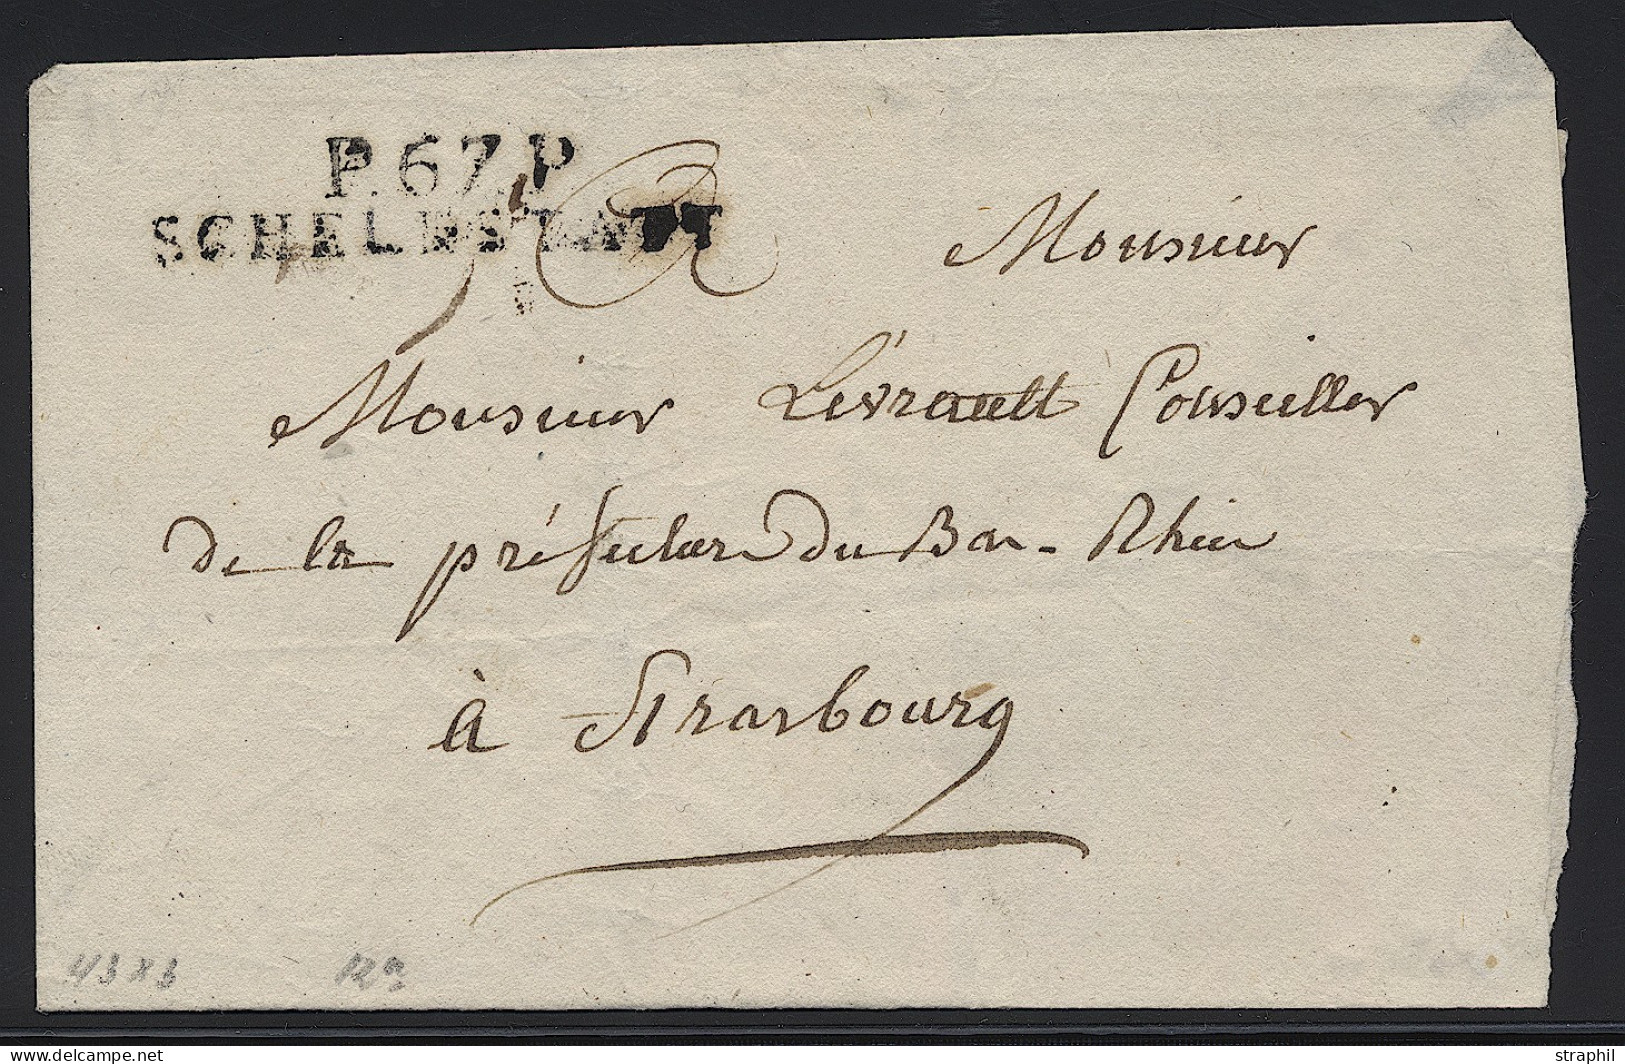 P.67.P
SCHELESTATT
Monsieur
Monsieur Levrault Conseiller
de la préfecture du Bas-Rhin
à Strasbourg
4383
delcampe.net
straphil